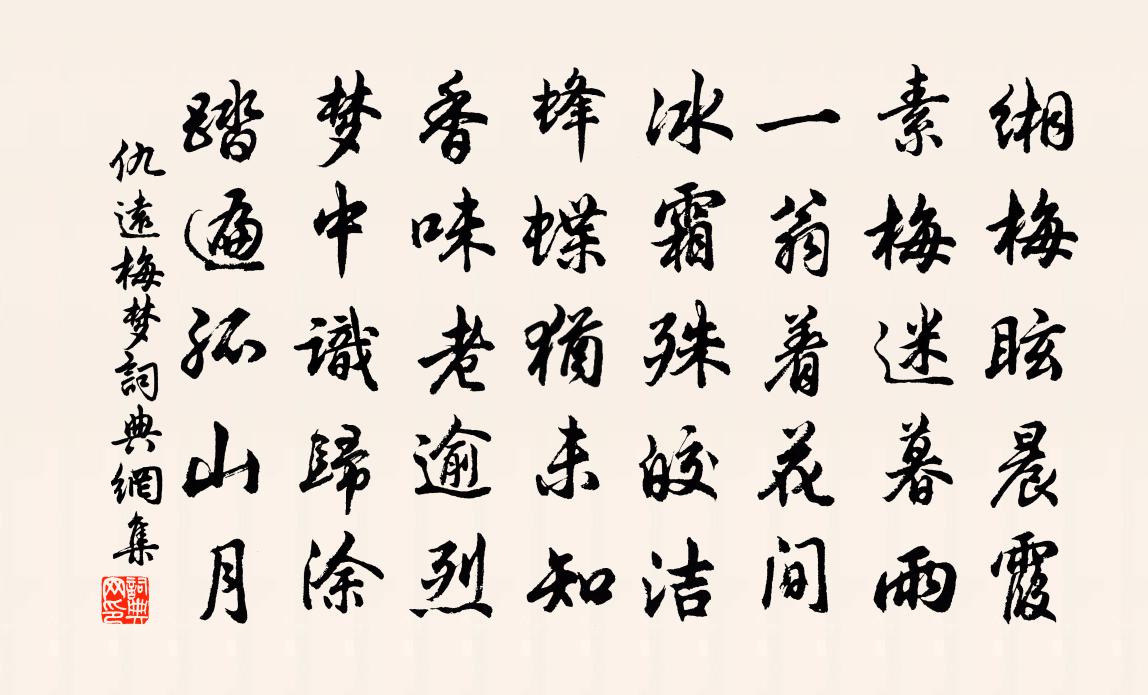 緗梅眩晨霞
素梅迷暮雨
一翁着花间
冰霜殊皎洁
蜂蝶猶未知
香味老逾烈
梦中識歸涂
踏遍孤山月
仇遠梅梦詞典網集
詞典网印